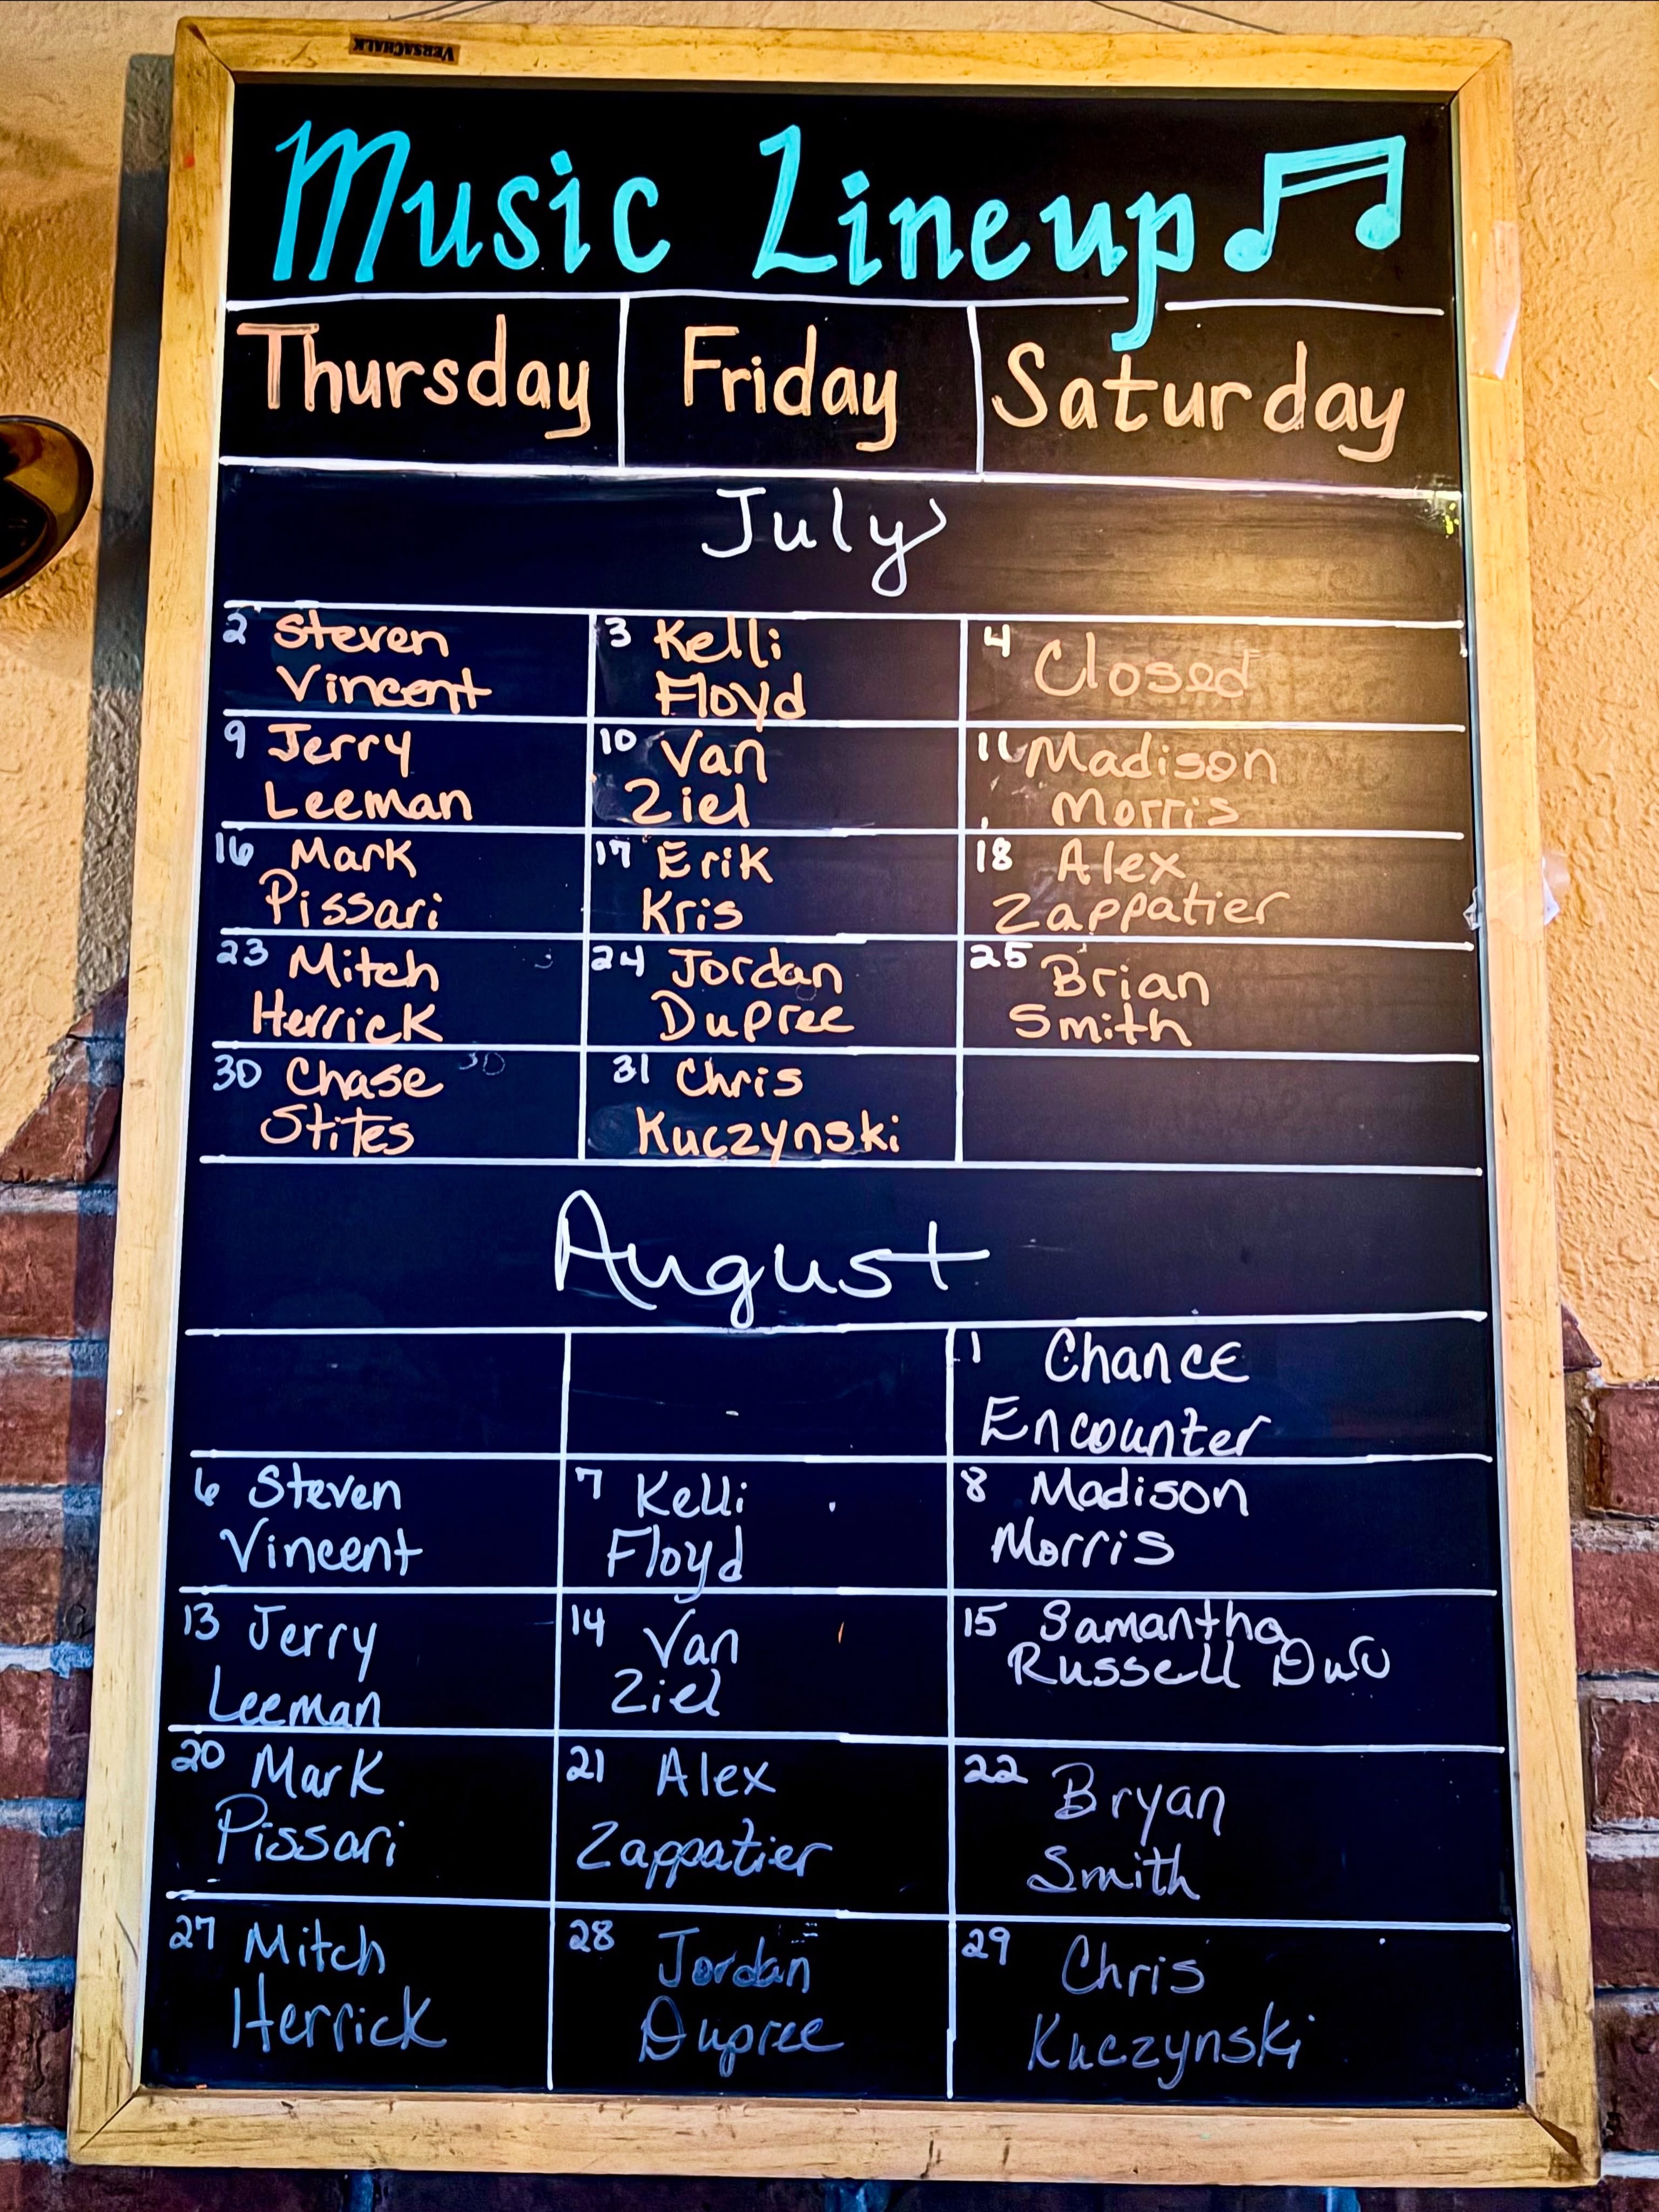 VERSACHALK
Music Lineup
Thursday Friday Saturday
July
2 Steven
Vincent
3 Kelli
Floyd
4 Closed
9 Jerry
Leeman
10 Van
Ziel
11 Madison
Morris
16 Mark
Pissari
17 Erik
Kris
18 Alex
Zappatier
23 Mitch
Herrick
24 Jordan
Dupree
25 Brian
Smith
30 Chase 30
Stites
31 Chris
Kuczynski
August
1 Chance
Encounter
6 Steven
Vincent
7 Kelli
Floyd
8 Madison
Morris
13 Jerry
Leeman
14 Van
Ziel
15 Samantha
Russell Duo
20 Mark
Pissari
21 Alex
Zappatier
22 Bryan
Smith
27 Mitch
Herrick
28 Jordan
Dupree
29 Chris
Kuczynski